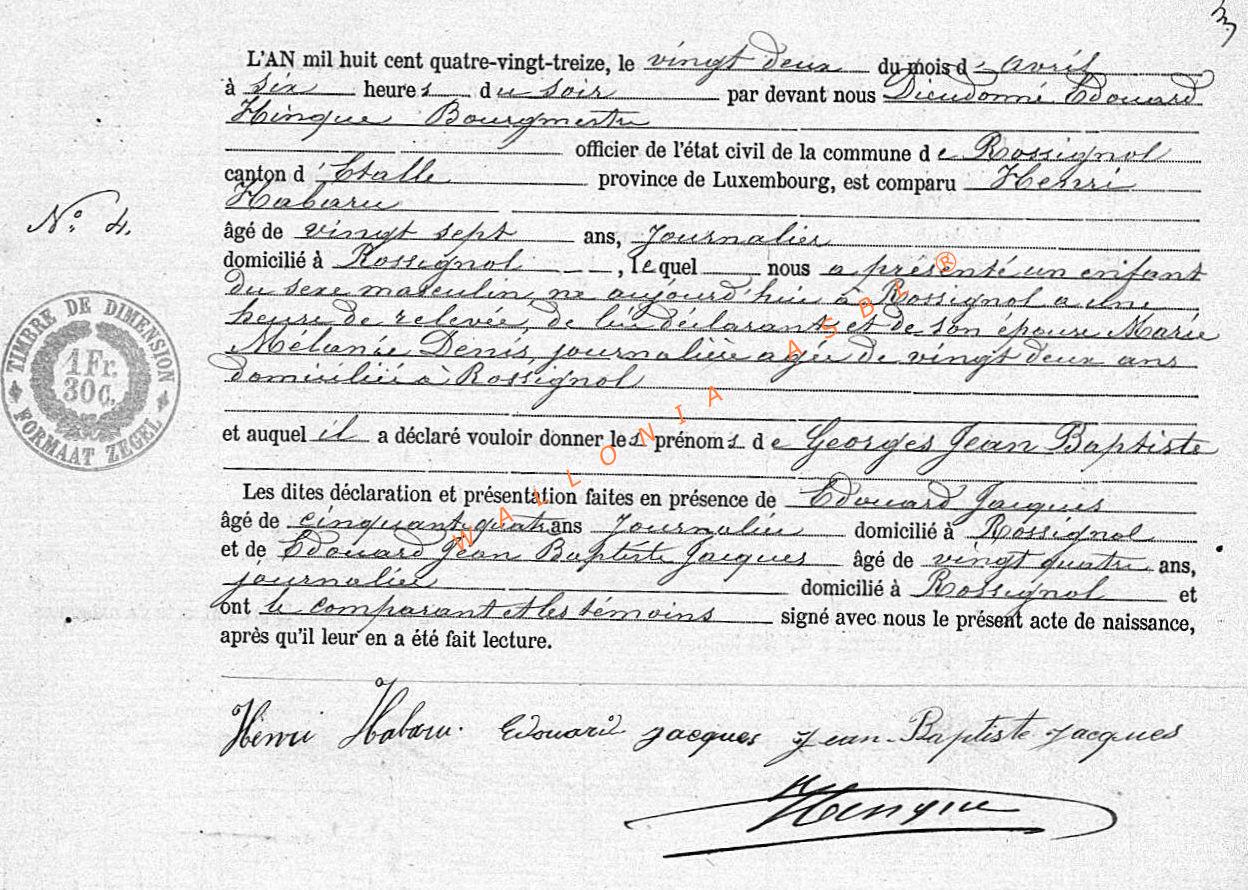 3
L'AN mil huit cent quatre-vingt-treize, le vingt deux du mois d'avril
à six heures du soir par devant nous Dieudonné Edouard
Hinque Bourgmestre
officier de l'état civil de la commune de Rossignol
canton d'Etalle province de Luxembourg, est comparu Henri
Habaru
N° 4.
âgé de vingt sept ans, Journalier
domicilié à Rossignol, lequel nous a présenté un enfant
du sexe masculin, né aujourd'hui à Rossignol a une
heure de relevée, de lui déclarant et de son épouse Marie
Mélanie Denis, journalière agée de vingt deux ans
domiciliée à Rossignol
et auquel il a déclaré vouloir donner les prénoms de Georges Jean Baptiste
Les dites déclaration et présentation faites en présence de Edouard Jacques
âgé de cinquante quatre ans Journalier domicilié à Rossignol
et de Edouard Jean Baptiste Jacques âgé de vingt quatre ans,
journalier domicilié à Rossignol et
ont le comparant et les témoins signé avec nous le présent acte de naissance,
après qu'il leur en a été fait lecture.
Henri Habaru. Edouard Jacques Jean-Baptiste Jacques
Hinque
TIMBRE DE DIMENSION
1 Fr.
30 C.
FORMAAT ZEGEL
WALLONIA ASBL ®